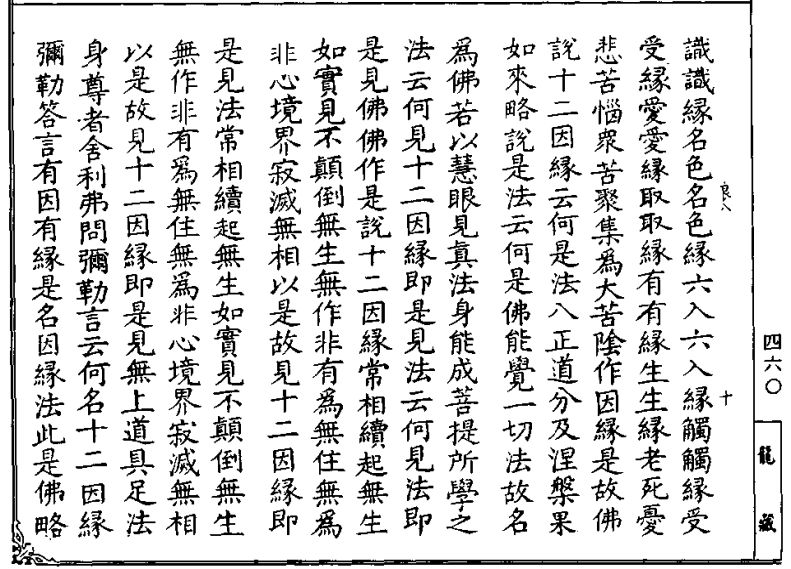 識識緣名色名色緣六入六入緣觸觸緣受
受緣愛愛緣取取緣有有緣生生緣老死憂
悲苦惱衆苦聚集為大苦陰作因緣是故佛
說十二因緣云何是法八正道分及涅槃果
如來略說是法云何是佛能覺一切法故名
為佛若以慧眼見真法身能成菩提所學之
法云何見十二因緣即是見法云何見法即
是見佛佛作是說十二因緣常相續起無生
如實見不顛倒無生無作非有為無住無為
非心境界寂滅無相以是故見十二因緣即
是見法常相續起無生如實見不顛倒無生
無作非有為無住無為非心境界寂滅無相
以是故見十二因緣即是見無上道具足法
身尊者舍利弗問彌勒言云何名十二因緣
彌勒答言有因有緣是名因緣法此是佛略
十
四六〇
龍藏